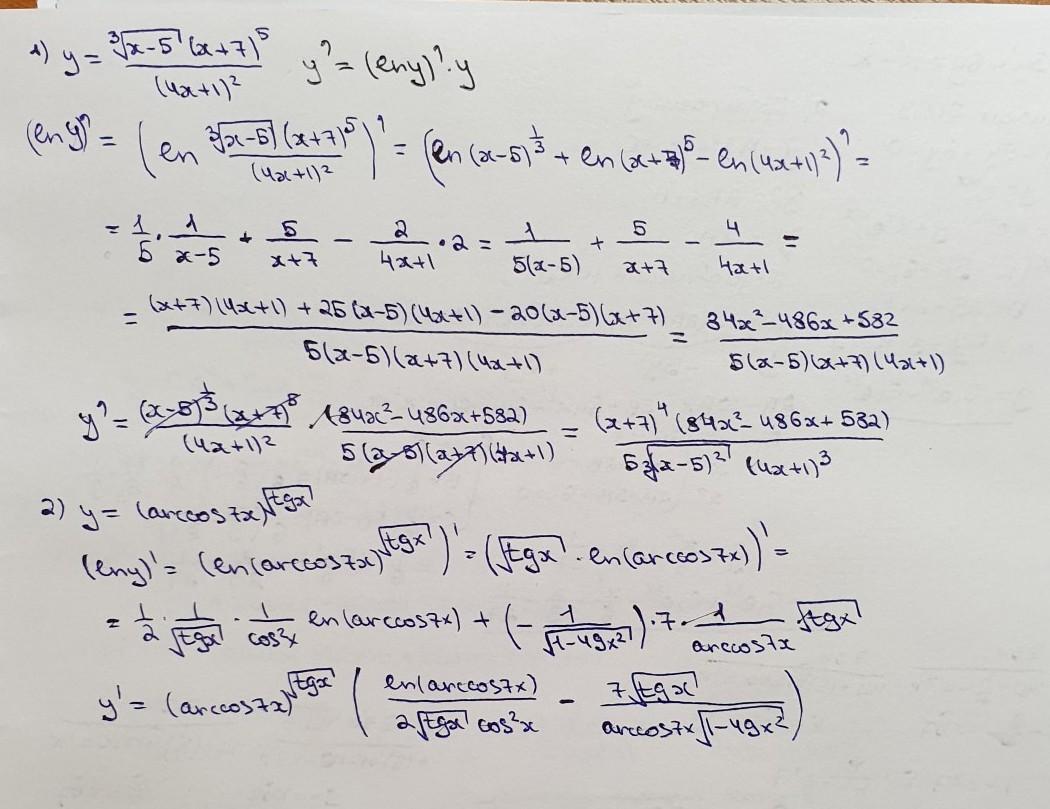 1) y = ∛(x-5) (x+7)⁵ / (4x+1)²   y' = (ln y)' · y
(ln y)' = (ln ∛(x-5) (x+7)⁵ / (4x+1)²)' = (ln (x-5)^(1/3) + ln (x+7)⁵ - ln (4x+1)²)' =
= 1/5 · 1/(x-5) + 5/(x+7) - 2/(4x+1) · 2 = 1/(5(x-5)) + 5/(x+7) - 4/(4x+1) =
= ((x+7)(4x+1) + 25(x-5)(4x+1) - 20(x-5)(x+7)) / (5(x-5)(x+7)(4x+1)) = (84x² - 486x + 582) / (5(x-5)(x+7)(4x+1))
y' = (x-5)^(1/3) (x+7)⁵ / (4x+1)² · (84x² - 486x + 582) / (5(x-5)(x+7)(4x+1)) = (x+7)⁴ (84x² - 486x + 582) / (5 ∛(x-5)² (4x+1)³)
2) y = (arccos7x)^√tgx
(ln y)' = (ln (arccos7x)^√tgx)' = (√tgx · ln (arccos7x))' =
= 1/2 · 1/√tgx · 1/cos²x ln (arccos7x) + (- 1/√(1-49x²)) · 7 · 1/arccos7x √tgx
y' = (arccos7x)^√tgx (ln (arccos7x) / (2√tgx cos²x) - 7√tgx / (arccos7x √(1-49x²)))